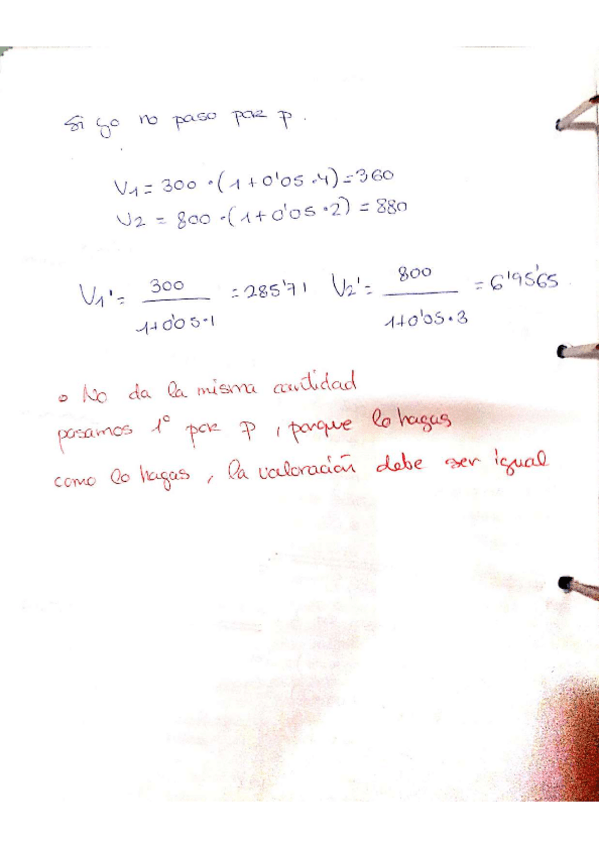 Si yo no paso por p.
V1 = 300 · (1 + 0'05 · 4) = 360
V2 = 800 · (1 + 0'05 · 2) = 880
V1' = 300 / 1+0'05·1 = 285'71 V2' = 800 / 1+0'05·3 = 6'95'65
• No da la misma cantidad
pasamos 1º por p, porque lo hagas
como lo hagas, la valoración debe ser igual